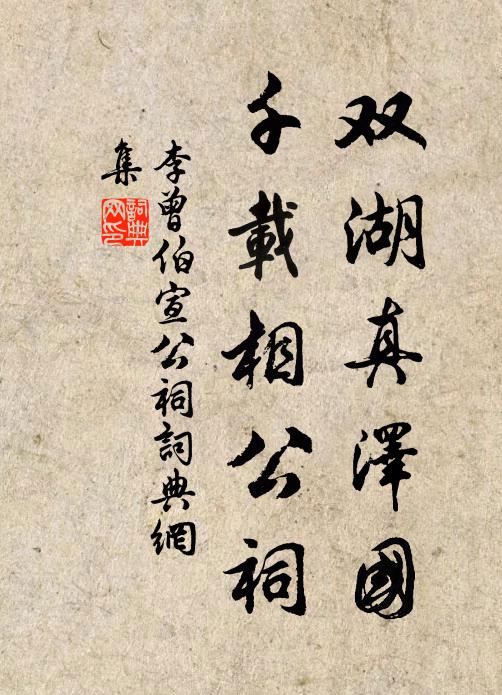 双湖真澤國
千載相公祠
李曾伯宣公祠詞典網
集
詞典網印